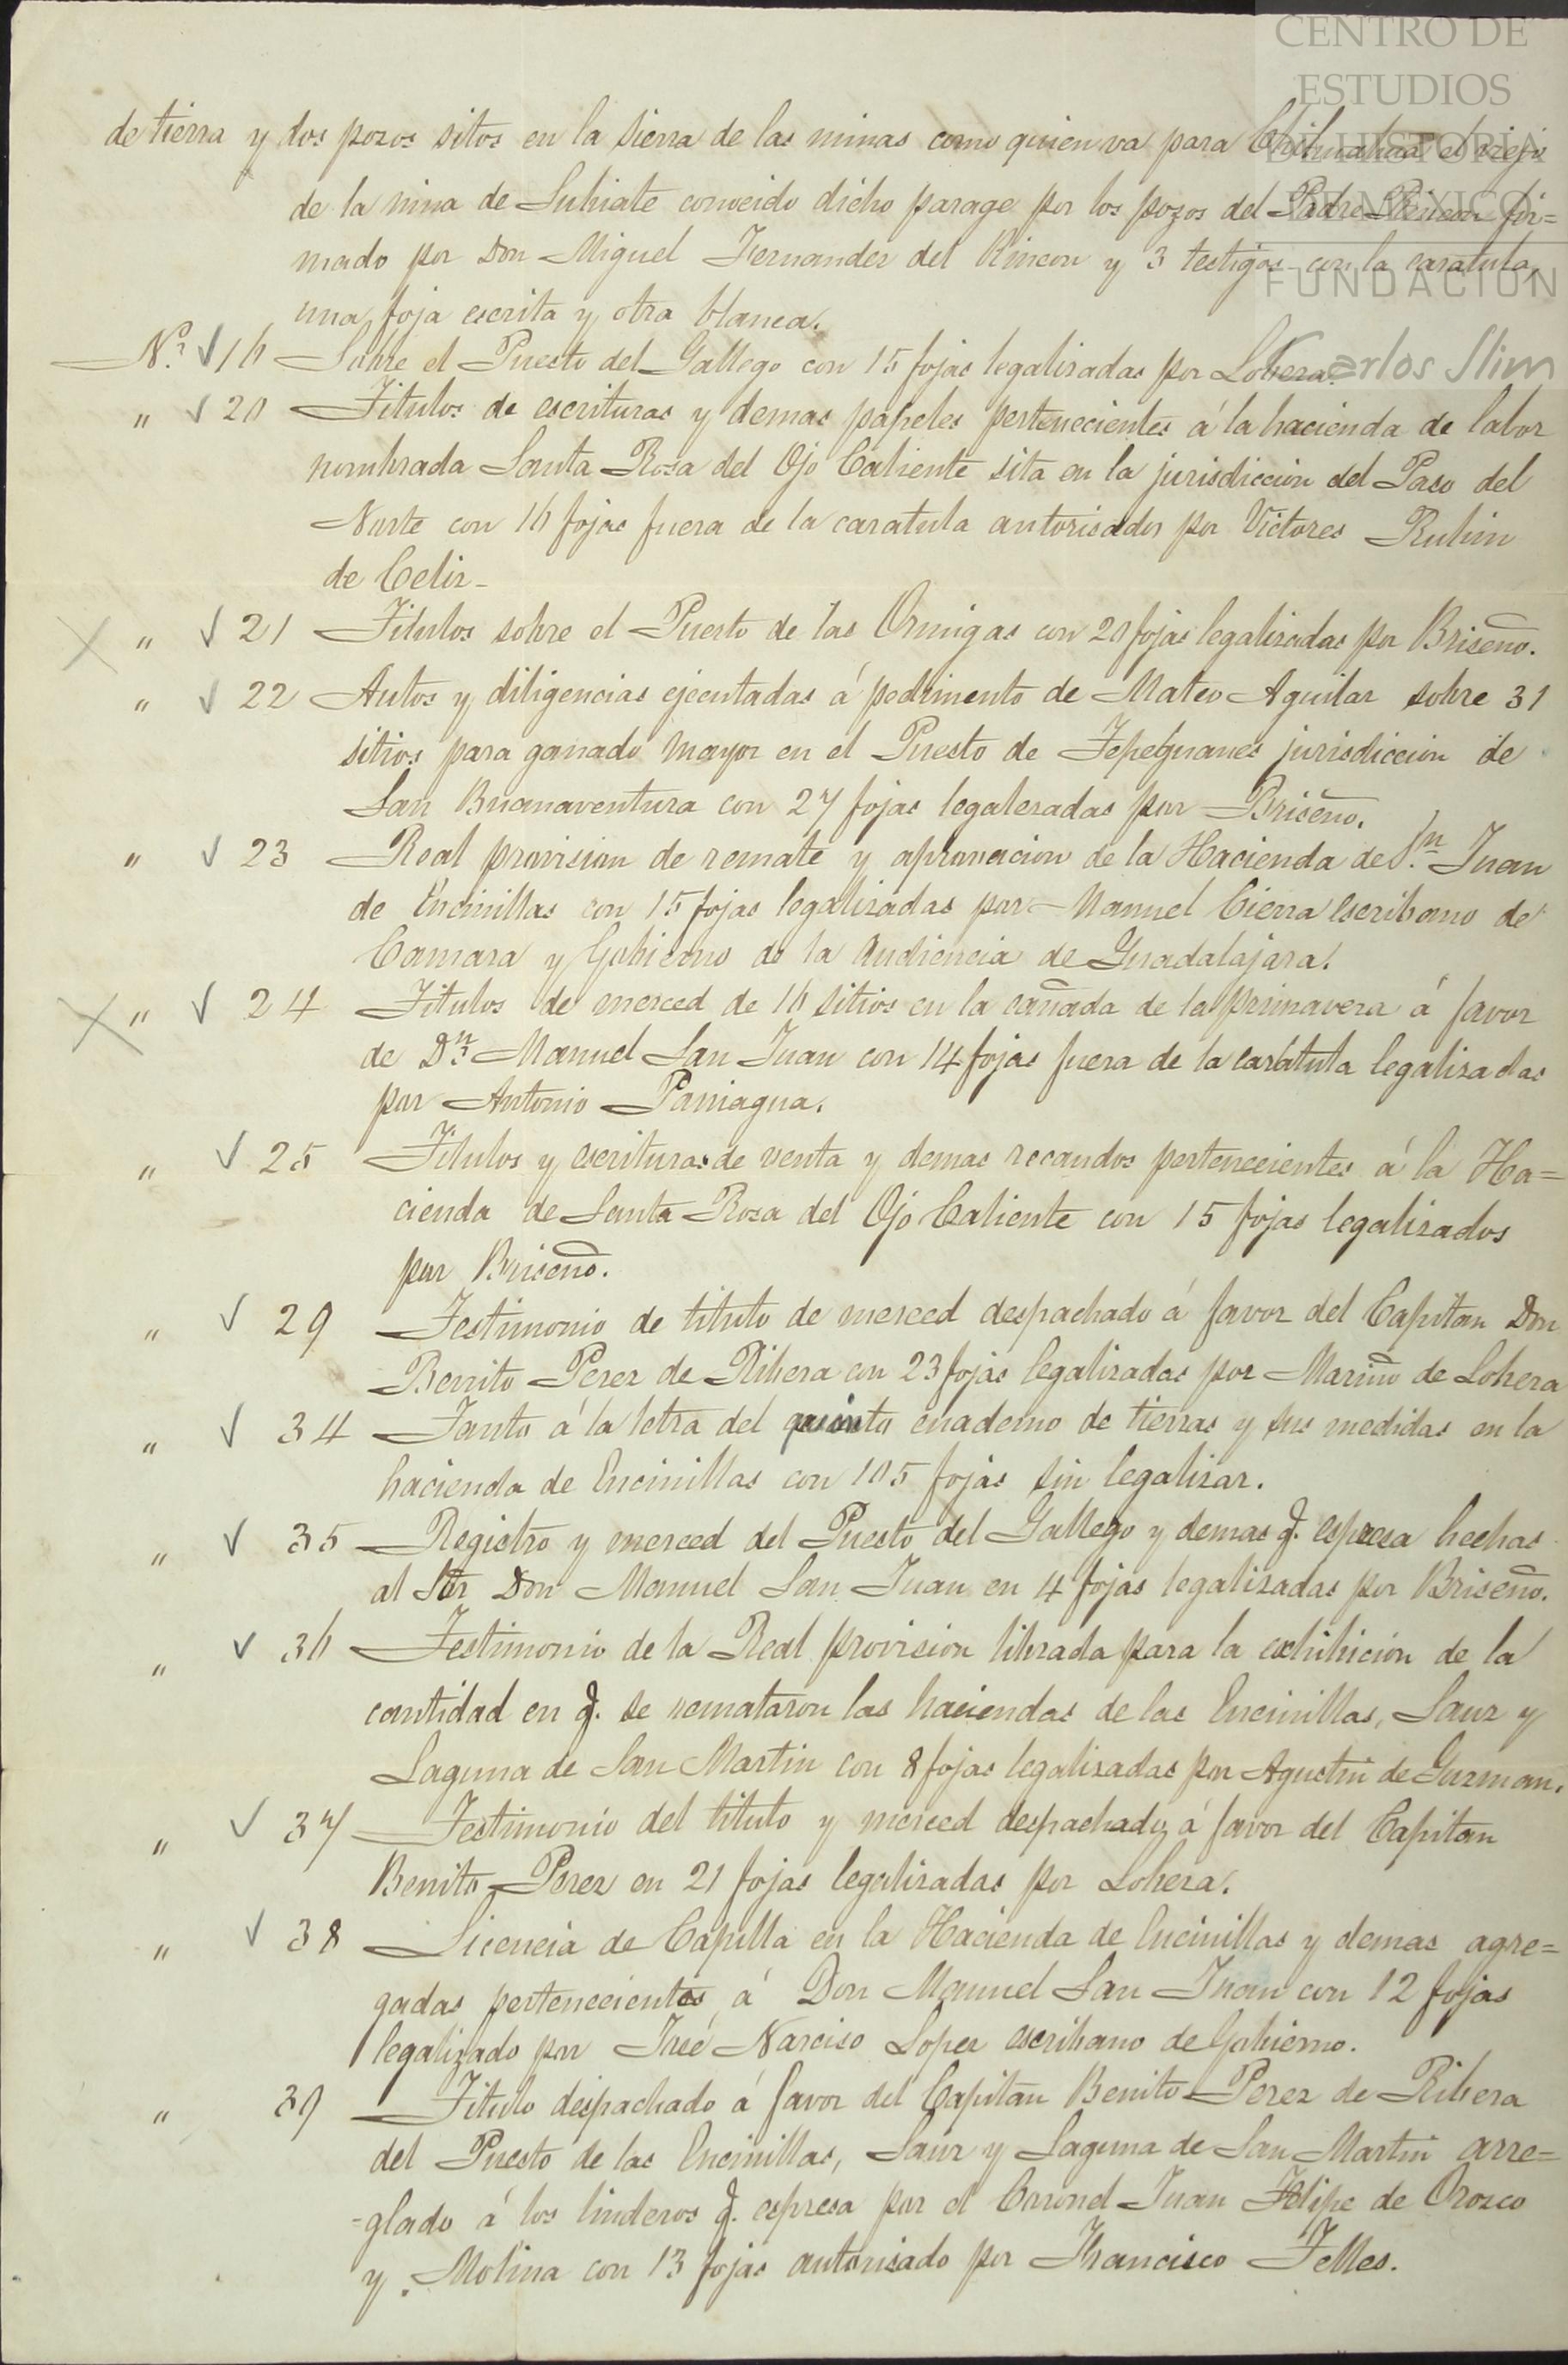 CENTRO DE
ESTUDIOS
DE HISTORIA
DE MÉXICO
FUNDACIÓN
Carlos Slim
de tierra y dos pozos sitos en la sierra de las minas como quien va para Chihuahua el viejo
de la mina de Suhiate conocido dicho parage por los pozos del Padre fir=
mado por Don Miguel Fernandez del Rincon y 3 testigos con la caratula,
una foja escrita y otra blanca.
N.º √ 16 Sobre el Puesto del Gallego con 15 fojas legalizadas por Lohera.
" √ 20 Titulos de escrituras y demas papeles pertenecientes á la hacienda de labor
nombrada Santa Rosa del Ojo Caliente sita en la jurisdiccion del Paso del
Norte con 16 fojas fuera de la caratula autorisados por Victores Rubin
de Celiz_
X " √ 21 Titulos sobre el Puerto de las Ormigas con 20 fojas legalizadas por Briseño.
" √ 22 Autos y diligencias ejecutadas á pedrimento de Mateo Aguilar sobre 31
sitios para ganado mayor en el Puesto de Tepeguanes jurisdiccion de
San Buanaventura con 27 fojas legaleradas por Briseño.
" √ 23 Real provision de remate y aprovacion de la Hacienda de S.n Juan
de Encinillas con 15 fojas legalizadas por Manuel Cierra escribano de
Camara y Gobierno de la Audiencia de Guadalajara.
X " √ 24 Titulos de merced de 16 sitios en la cañada de la primavera á favor
de D.n Manuel San Juan con 14 fojas fuera de la carátula legalizadas
por Antonio Paniagua.
" √ 25 Titulos y escrituras de venta y demas recaudos pertenecientes á la Ha=
cienda de Santa Rosa del Ojo Caliente con 15 fojas legalizados
por Briseño.
" √ 29 Testimonio de titulo de merced despachado á favor del Capitan Don
Benito Perez de Ribera con 23 fojas legalizadas por Mariño de Lohera
" √ 34 Tanto á la letra del quinto cuaderno de tierras y sus medidas en la
hacienda de Encinillas con 105 fojas sin legalizar.
" √ 35 Registro y merced del Puesto del Gallego y demas q. espresa hechas
al Sor Don Manuel San Juan en 4 fojas legalizadas por Briseño.
" √ 36 Testimonio de la Real provision librada para la exhibición de la
cantidad en q. se remataron las haciendas de las Encinillas, Sauz y
Laguna de San Martin con 8 fojas legalizadas por Agustin de Guzman.
" √ 37 Testimonio del titulo y merced despachado á favor del Capitan
Benito Perez en 21 fojas legalizadas por Lohera.
" √ 38 Licencia de Capilla en la Hacienda de Encinillas y demas agre=
gadas pertenecientes á Don Manuel San Juan con 12 fojas
legalizado por José Narciso Lopez escribano de Gobierno.
" 39 Titulo despachado á favor del Capitan Benito Perez de Ribera
del Puesto de las Encinillas, Sauz y Laguna de San Martin arre=
=glado á los linderos q. espresa por el Coronel Juan Felipe de Orozco
y Molina con 13 fojas autorisado por Francisco Telles.